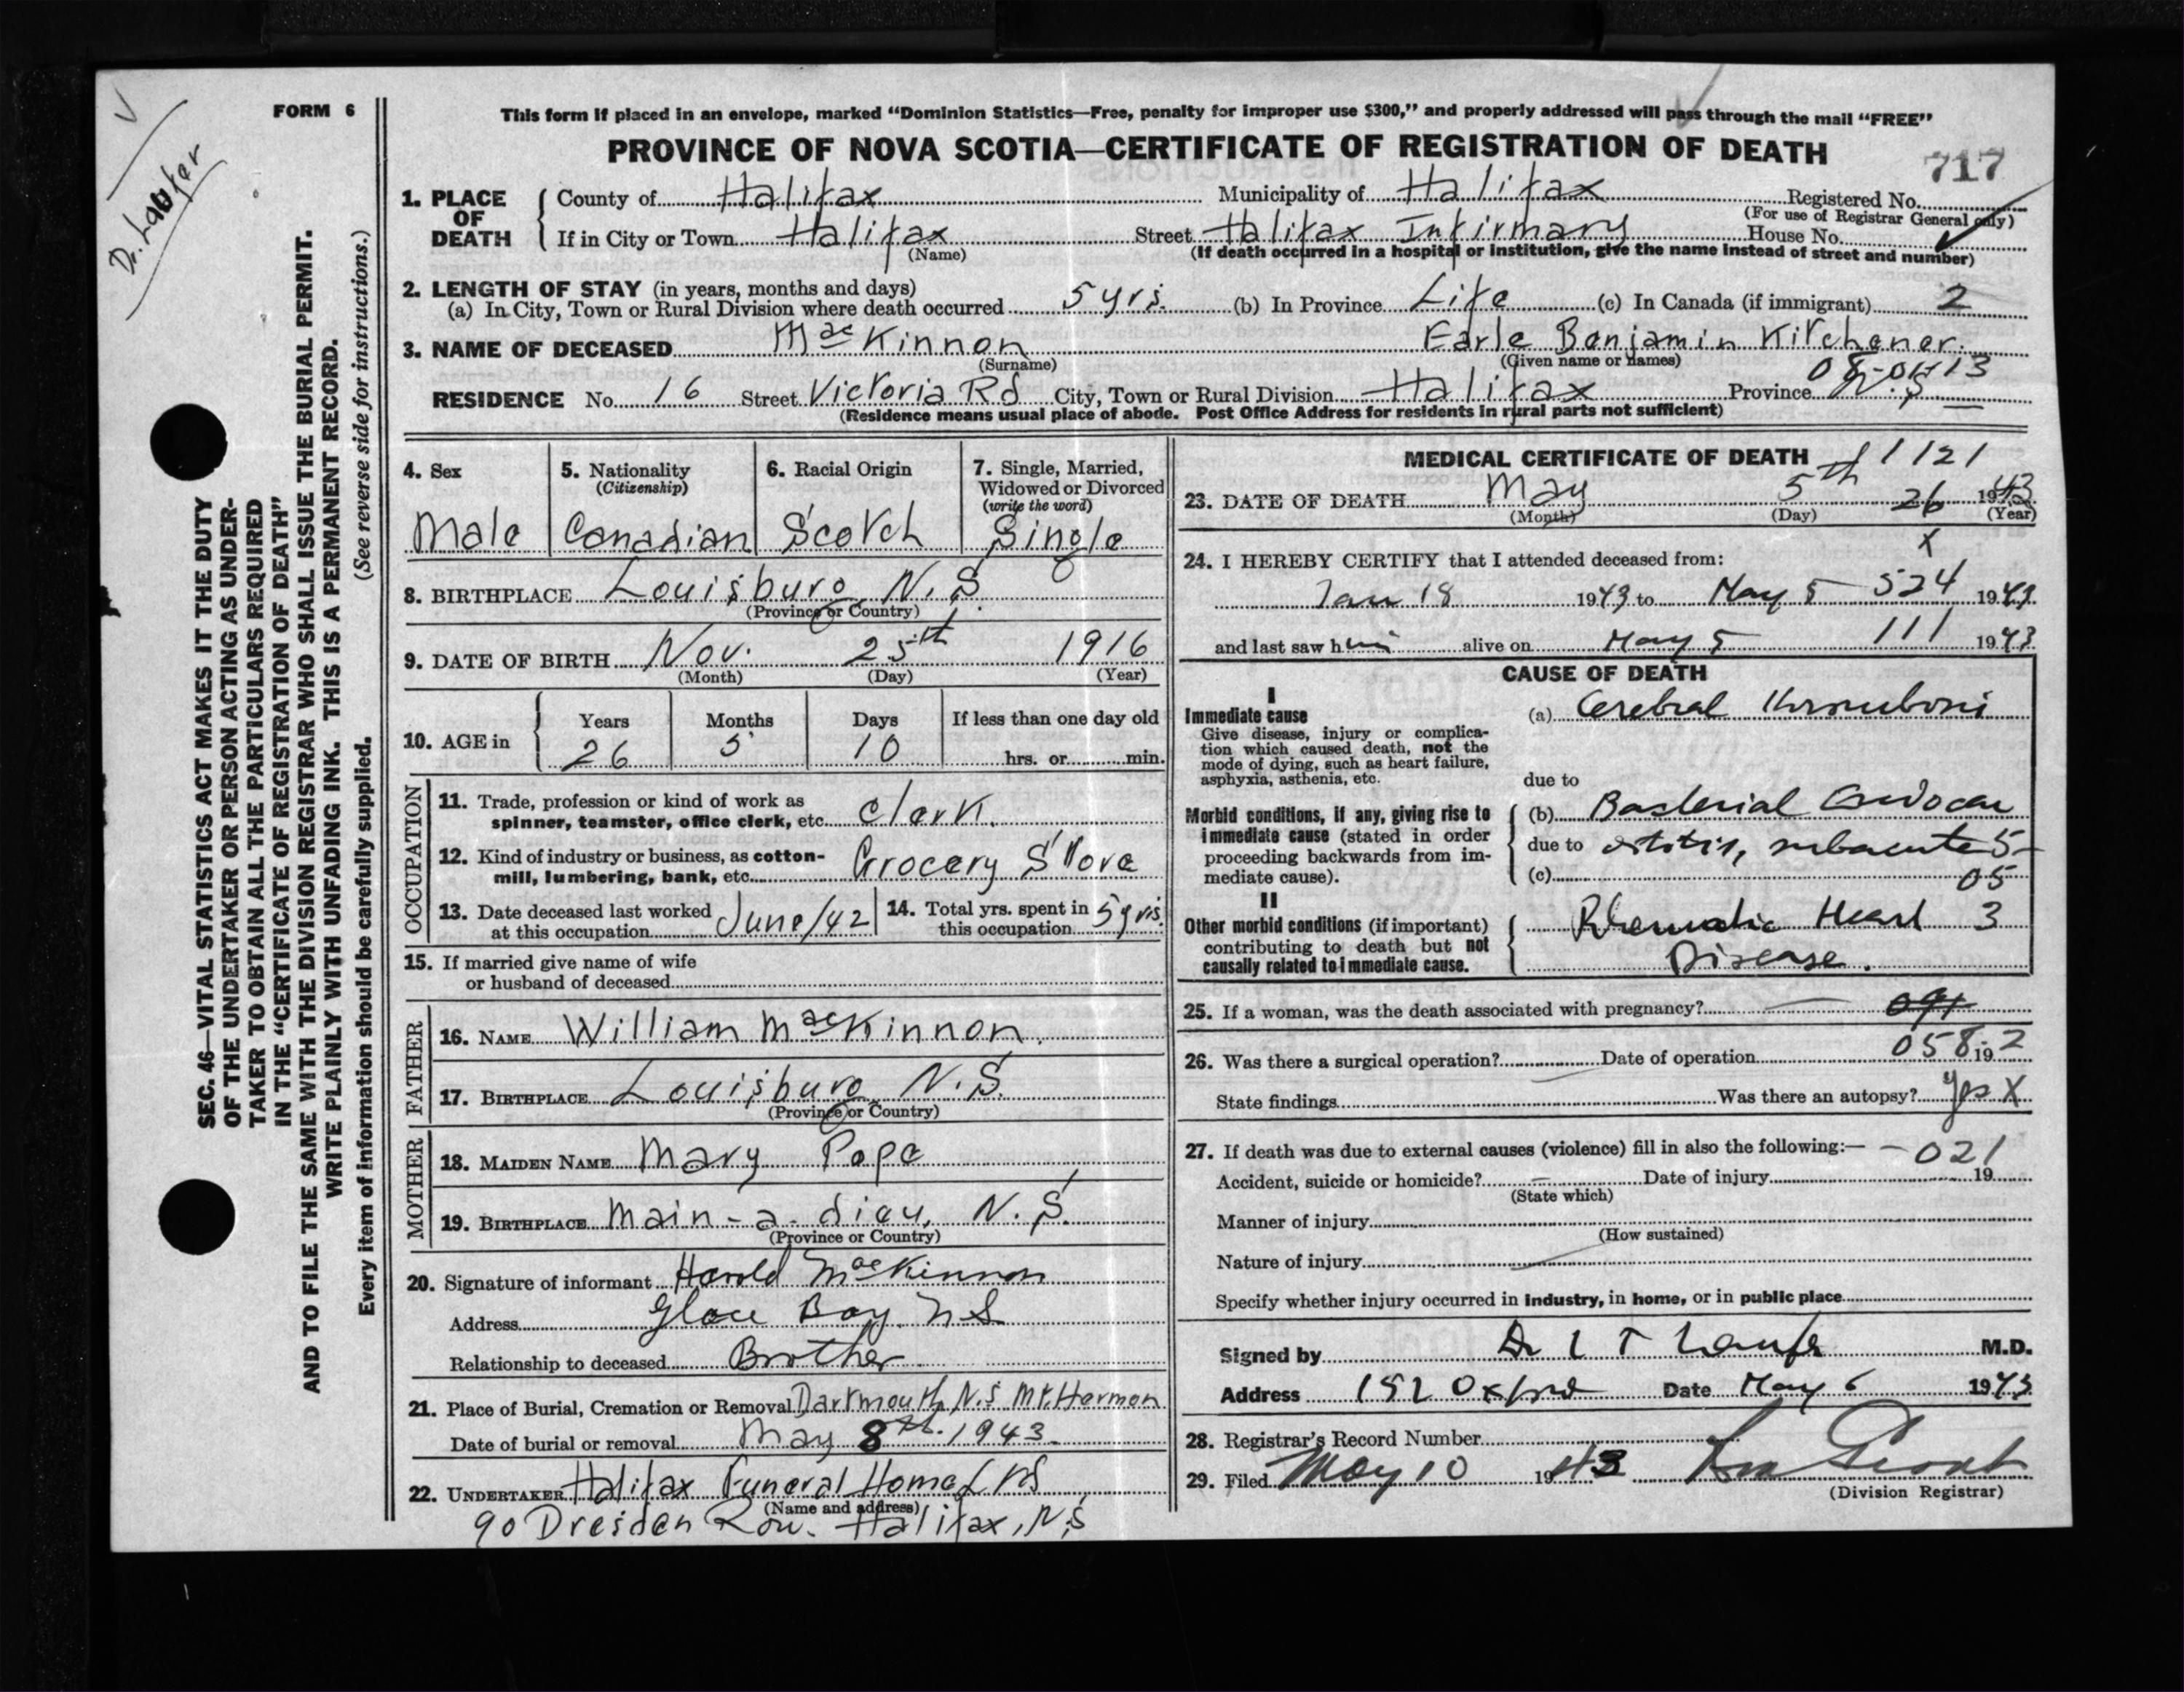 FORM 6
Dr. Laufer
This form if placed in an envelope, marked "Dominion Statistics—Free, penalty for improper use $300," and properly addressed will pass through the mail "FREE"
PROVINCE OF NOVA SCOTIA—CERTIFICATE OF REGISTRATION OF DEATH
717
SEC. 46—VITAL STATISTICS ACT MAKES IT THE DUTY
OF THE UNDERTAKER OR PERSON ACTING AS UNDER-
TAKER TO OBTAIN ALL THE PARTICULARS REQUIRED
IN THE "CERTIFICATE OF REGISTRATION OF DEATH"
AND TO FILE THE SAME WITH THE DIVISION REGISTRAR WHO SHALL ISSUE THE BURIAL PERMIT.
WRITE PLAINLY WITH UNFADING INK. THIS IS A PERMANENT RECORD.
Every item of information should be carefully supplied. (See reverse side for instructions.)
1. PLACE OF DEATH
County of Halifax Municipality of Halifax Registered No.
(For use of Registrar General only)
If in City or Town Halifax Street Halifax Infirmary House No.
(Name) (If death occurred in a hospital or institution, give the name instead of street and number)
2. LENGTH OF STAY (in years, months and days)
(a) In City, Town or Rural Division where death occurred 5 yrs. (b) In Province Life (c) In Canada (if immigrant) 2
3. NAME OF DECEASED MacKinnon Earle Benjamin Kitchener.
(Surname) (Given name or names)
RESIDENCE No. 16 Street Victoria Rd City, Town or Rural Division Halifax Province N.S
(Residence means usual place of abode. Post Office Address for residents in rural parts not sufficient)
4. Sex
Male
5. Nationality
(Citizenship)
Canadian
6. Racial Origin
Scotch
7. Single, Married,
Widowed or Divorced
(write the word)
Single
8. BIRTHPLACE Louisburg N.S.
(Province or Country)
9. DATE OF BIRTH Nov. 25th 1916
(Month) (Day) (Year)
10. AGE in
Years Months Days If less than one day old
26 5 10 hrs. or min.
OCCUPATION
11. Trade, profession or kind of work as
spinner, teamster, office clerk, etc. Clerk.
12. Kind of industry or business, as cotton-
mill, lumbering, bank, etc. Grocery Store
13. Date deceased last worked
at this occupation June/42
14. Total yrs. spent in
this occupation 5 yrs.
15. If married give name of wife
or husband of deceased
FATHER
16. NAME William MacKinnon.
17. BIRTHPLACE Louisburg N.S.
(Province or Country)
MOTHER
18. MAIDEN NAME Mary Pope
19. BIRTHPLACE Main-a-dieu, N.S.
(Province or Country)
20. Signature of informant Harold MacKinnon
Address Glace Bay. N S
Relationship to deceased Brother
21. Place of Burial, Cremation or Removal Dartmouth N.S Mt. Hermon
Date of burial or removal May 8th. 1943.
22. UNDERTAKER Halifax Funeral Home Ltd
(Name and address)
90 Dresden Row. Halifax, N.S
MEDICAL CERTIFICATE OF DEATH 1121
23. DATE OF DEATH May 5th 26 1943
(Month) (Day) (Year)
X
24. I HEREBY CERTIFY that I attended deceased from:
Jan 18 1943 to May 5 524 1943
and last saw him alive on May 5 111 1943
CAUSE OF DEATH
I
Immediate cause
Give disease, injury or complica-
tion which caused death, not the
mode of dying, such as heart failure,
asphyxia, asthenia, etc.
(a) Cerebral
due to
Morbid conditions, if any, giving rise to
immediate cause (stated in order
proceeding backwards from im-
mediate cause).
(b) Bacterial Endocar
due to subacute 5-
(c) 05
II
Other morbid conditions (if important)
contributing to death but not
causally related to immediate cause.
Rheumatic Heart 3
Disease.
25. If a woman, was the death associated with pregnancy?
26. Was there a surgical operation? Date of operation 058.2 19
State findings Was there an autopsy? Yes X
27. If death was due to external causes (violence) fill in also the following:— 021
Accident, suicide or homicide? Date of injury 19
(State which)
Manner of injury
(How sustained)
Nature of injury
Specify whether injury occurred in industry, in home, or in public place
Signed by Dr L T Laufer M.D.
Address 192 Oxford Date May 6 1943
28. Registrar's Record Number
29. Filed May 10 1943
(Division Registrar)